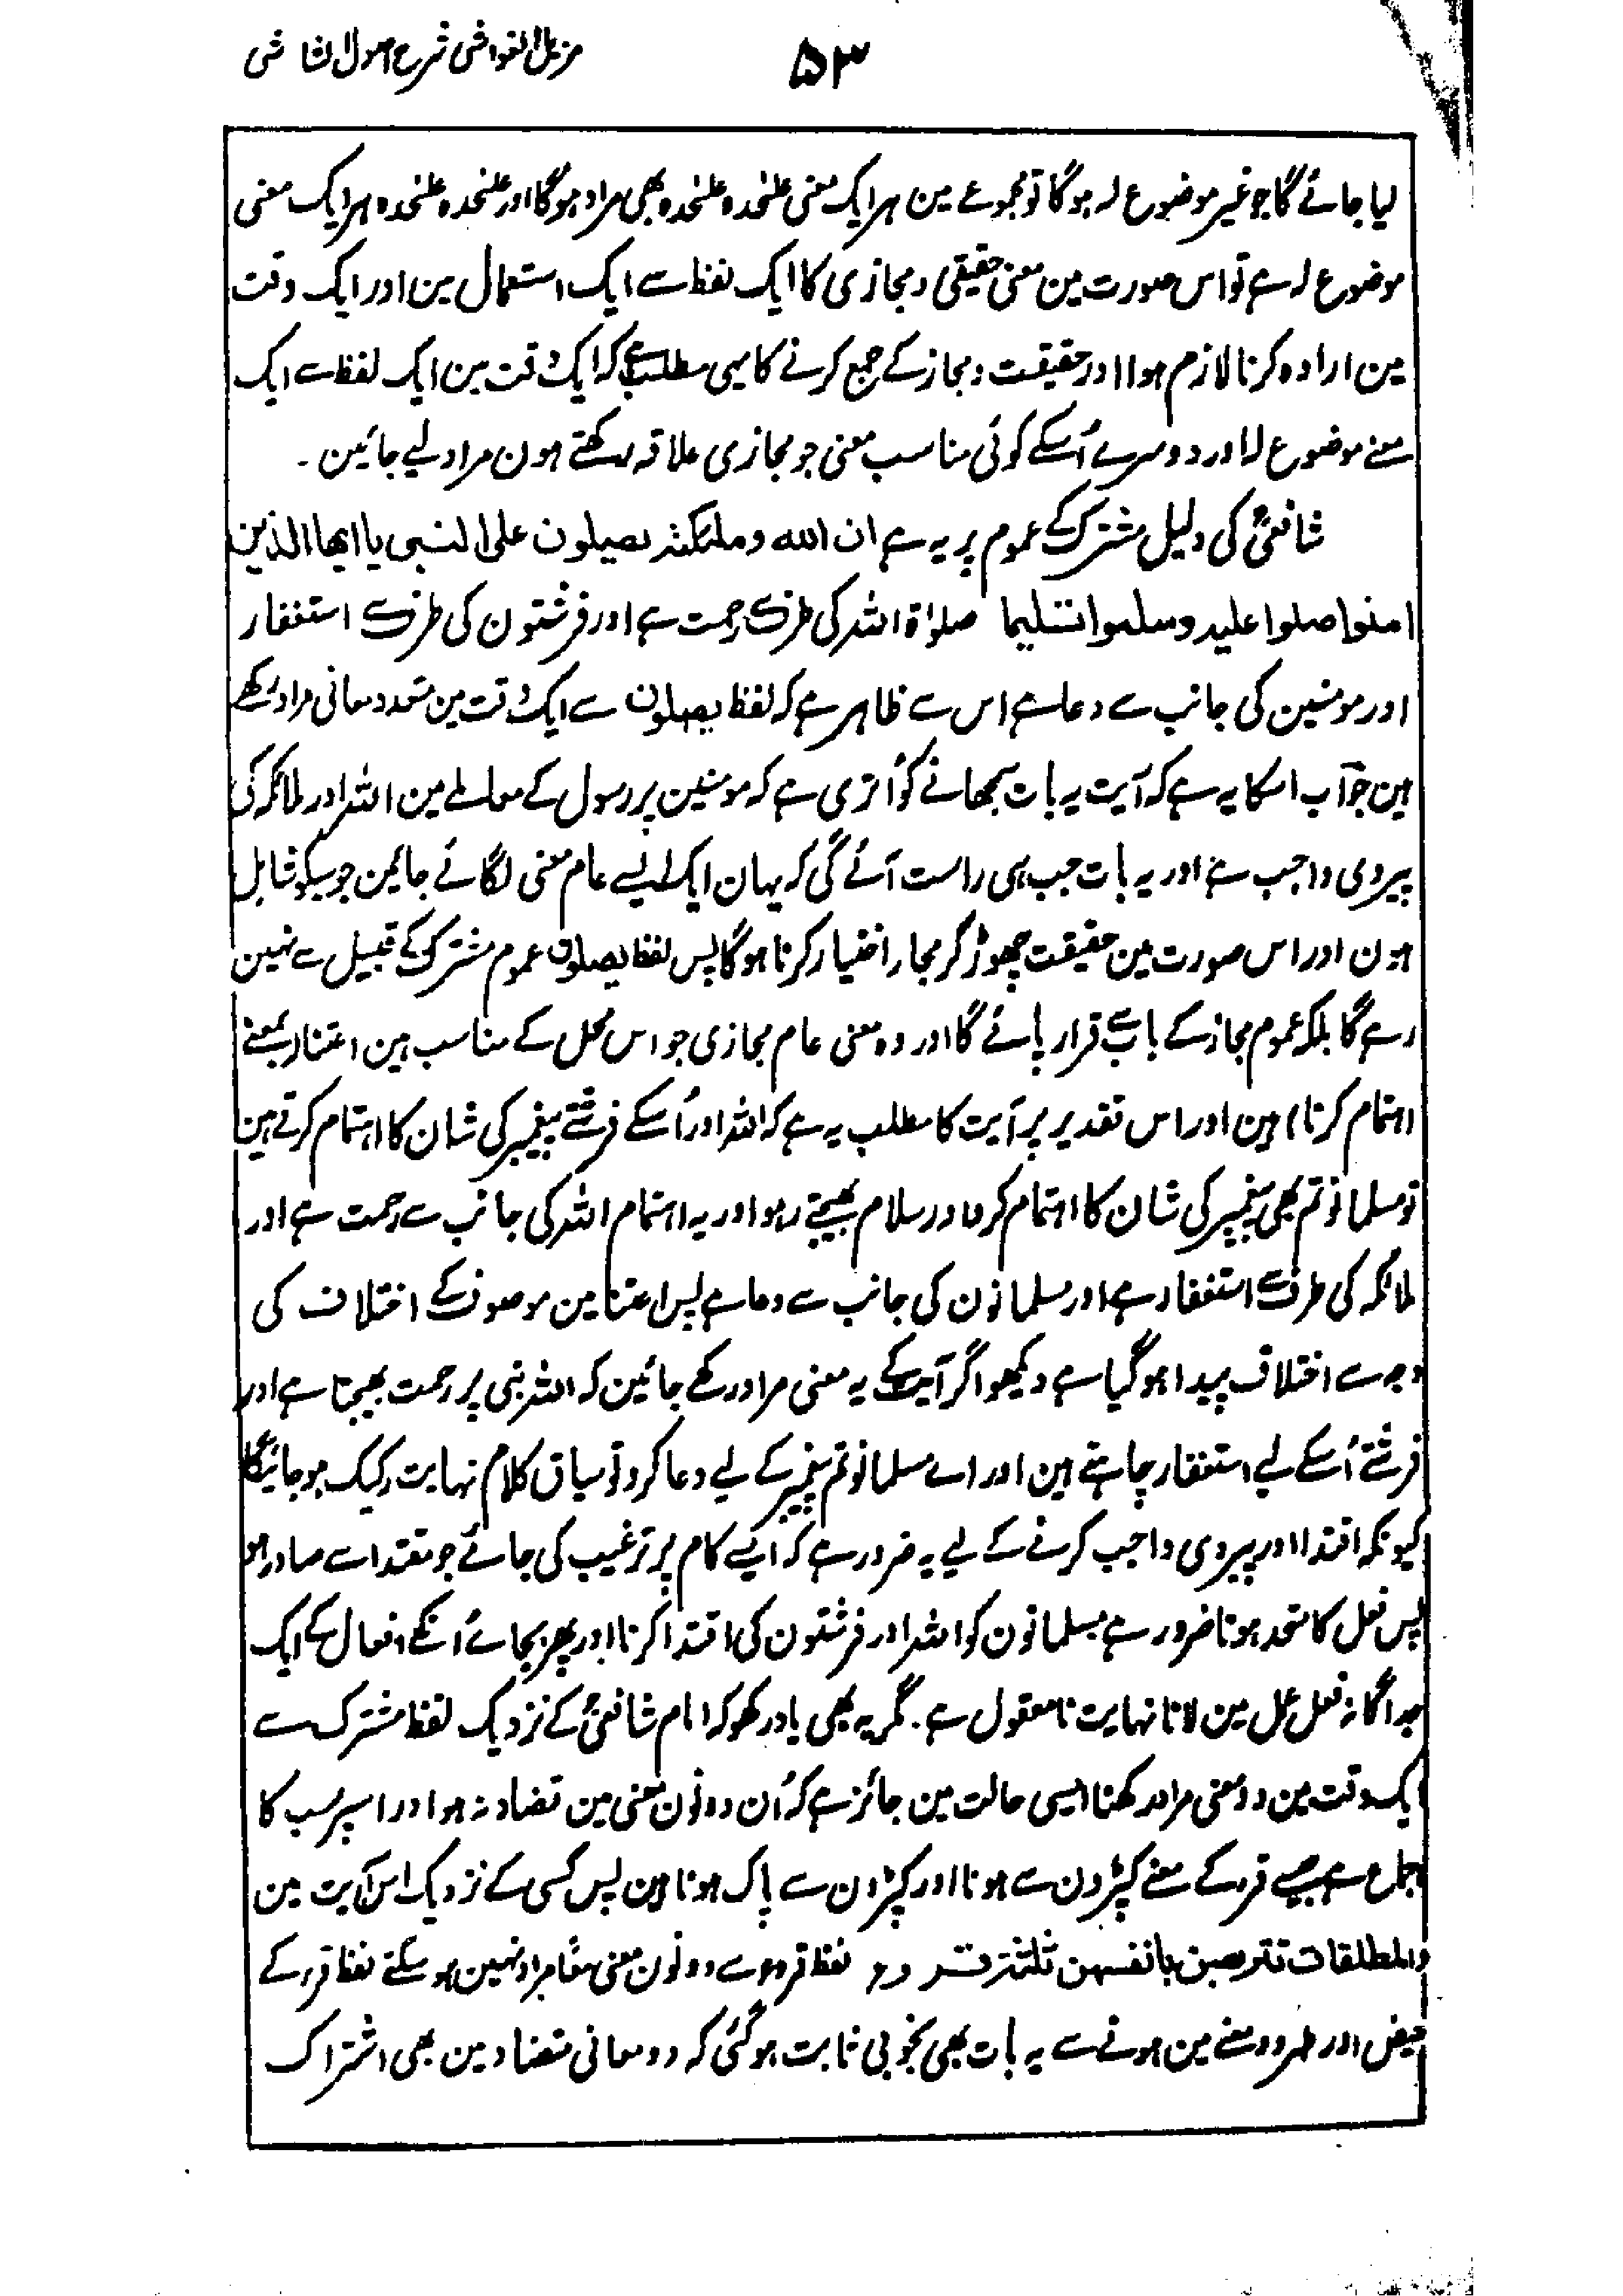 مزیل الغواشی شرح اصول الشاشی
۵۳
لیا جائے گا جو غیر موضوع لہ ہوگا تو مجموعے مین ہر ایک معنی علٰحدہ علٰحدہ بھی مراد ہوگا اور علٰحدہ علٰحدہ ہر ایک معنی
موضوع لہ ہے تو اس صورت مین معنی حقیقی و مجازی کا ایک لفظ سے ایک استعمال مین اور ایک وقت
مین ارادہ کرنا لازم ہوا اور حقیقت و مجاز کے جمع کرنے کا یہی مطلب ہے کہ ایک وقت مین ایک لفظ سے ایک
معنے موضوع لہ اور دوسرے اُسکے کوئی مناسب معنی جو مجازی علاقہ رکھتے ہون مراد لیے جائین۔
شافعیؒ کی دلیل مشترک کے عموم پر یہ ہے ان الله وملٰئکته یصلون علی النبی یا ایها الذین
امنوا صلوا علیه وسلموا تسلیما صلوٰۃ اللہ کی طرف سے رحمت ہے اور فرشتون کی طرف سے استغفار
اور مومنین کی جانب سے دعا ہے اس سے ظاہر ہے کہ لفظ یصلون سے ایک وقت مین متعدد معانی مراد رکھے
ہین جوآب اسکا یہ ہے کہ آیت یہ بات سمجھانے کو اُتری ہے کہ مومنین پر رسول کے معاملے مین اللہ اور ملائکہ کی
پیروی واجب ہے اور یہ بات جب ہی راست آئے گی کہ یہان ایک ایسے عام معنی لگائے جائین جو سبکو شامل
ہون اور اس صورت مین حقیقت چھوڑ کر مجاز اختیار کرنا ہوگا پس لفظ یصلون عموم مشترک کے قبیل سے نہین
رہے گا بلکہ عموم مجاز کے باب سے قرار پائے گا اور وہ معنی عام مجازی جو اس محل کے مناسب ہین اعتنا (بمعنے
اہتمام کرنا) ہین اور اس تقدیر پر آیت کا مطلب یہ ہے کہ اللہ اور اُسکے فرشتے پیغمبر کی شان کا اہتمام کرتے ہین
تو مسلمانو تم بھی پیغمبر کی شان کا اہتمام کرو اور سلام بھیجتے رہو اور یہ اہتمام اللہ کی جانب سے رحمت ہے اور
ملائکہ کی طرف سے استغفار ہے اور مسلمانون کی جانب سے دعا ہے پس اعتنا مین موصوف کے اختلاف کی
وجہ سے اختلاف پیدا ہو گیا ہے دیکھو اگر آیت کے یہ معنی مراد رکھے جائین کہ اللہ نبی پر رحمت بھیجتا ہے اور
فرشتے اُسکے لیے استغفار چاہتے ہین اور اے مسلمانو تم پیغمبر کے لیے دعا کرو تو سیاق کلام نہایت رکیک ہو جائیگا
کیونکہ اقتدا اور پیروی واجب کرنے کے لیے یہ ضرور ہے کہ ایسے کام پر ترغیب کی جائے جو مقتدا سے صادر ہو
پس فعل کا متحد ہونا ضرور ہے مسلمانون کو اللہ اور فرشتون کی اقتدا کرنا اور پھر بجائے اُنکے افعال کے ایک
جداگانہ فعل عمل مین لانا نہایت نامعقول ہے۔ مگر یہ بھی یاد رکھو کہ امام شافعیؒ کے نزدیک لفظ مشترک سے
ایک وقت مین دو معنی مراد رکھنا ایسی حالت مین جائز ہے کہ اُن دونون معنی مین تضاد نہ ہو اور اسپر سب کا
اجماع ہے جیسے قرء کے معنے کپڑون سے ہونا اور کپڑون سے پاک ہونا ہین پس کسی کے نزدیک اس آیت مین
والمطلقات یتربصن بانفسهن ثلثة قروء لفظ قروء سے دونون معنی معًا مراد نہین ہو سکتے لفظ قرء کے
حیض اور طہر دو معنے مین ہونے سے یہ بات بھی بخوبی ثابت ہو گئی کہ دو معانی متضاد مین بھی اشتراک